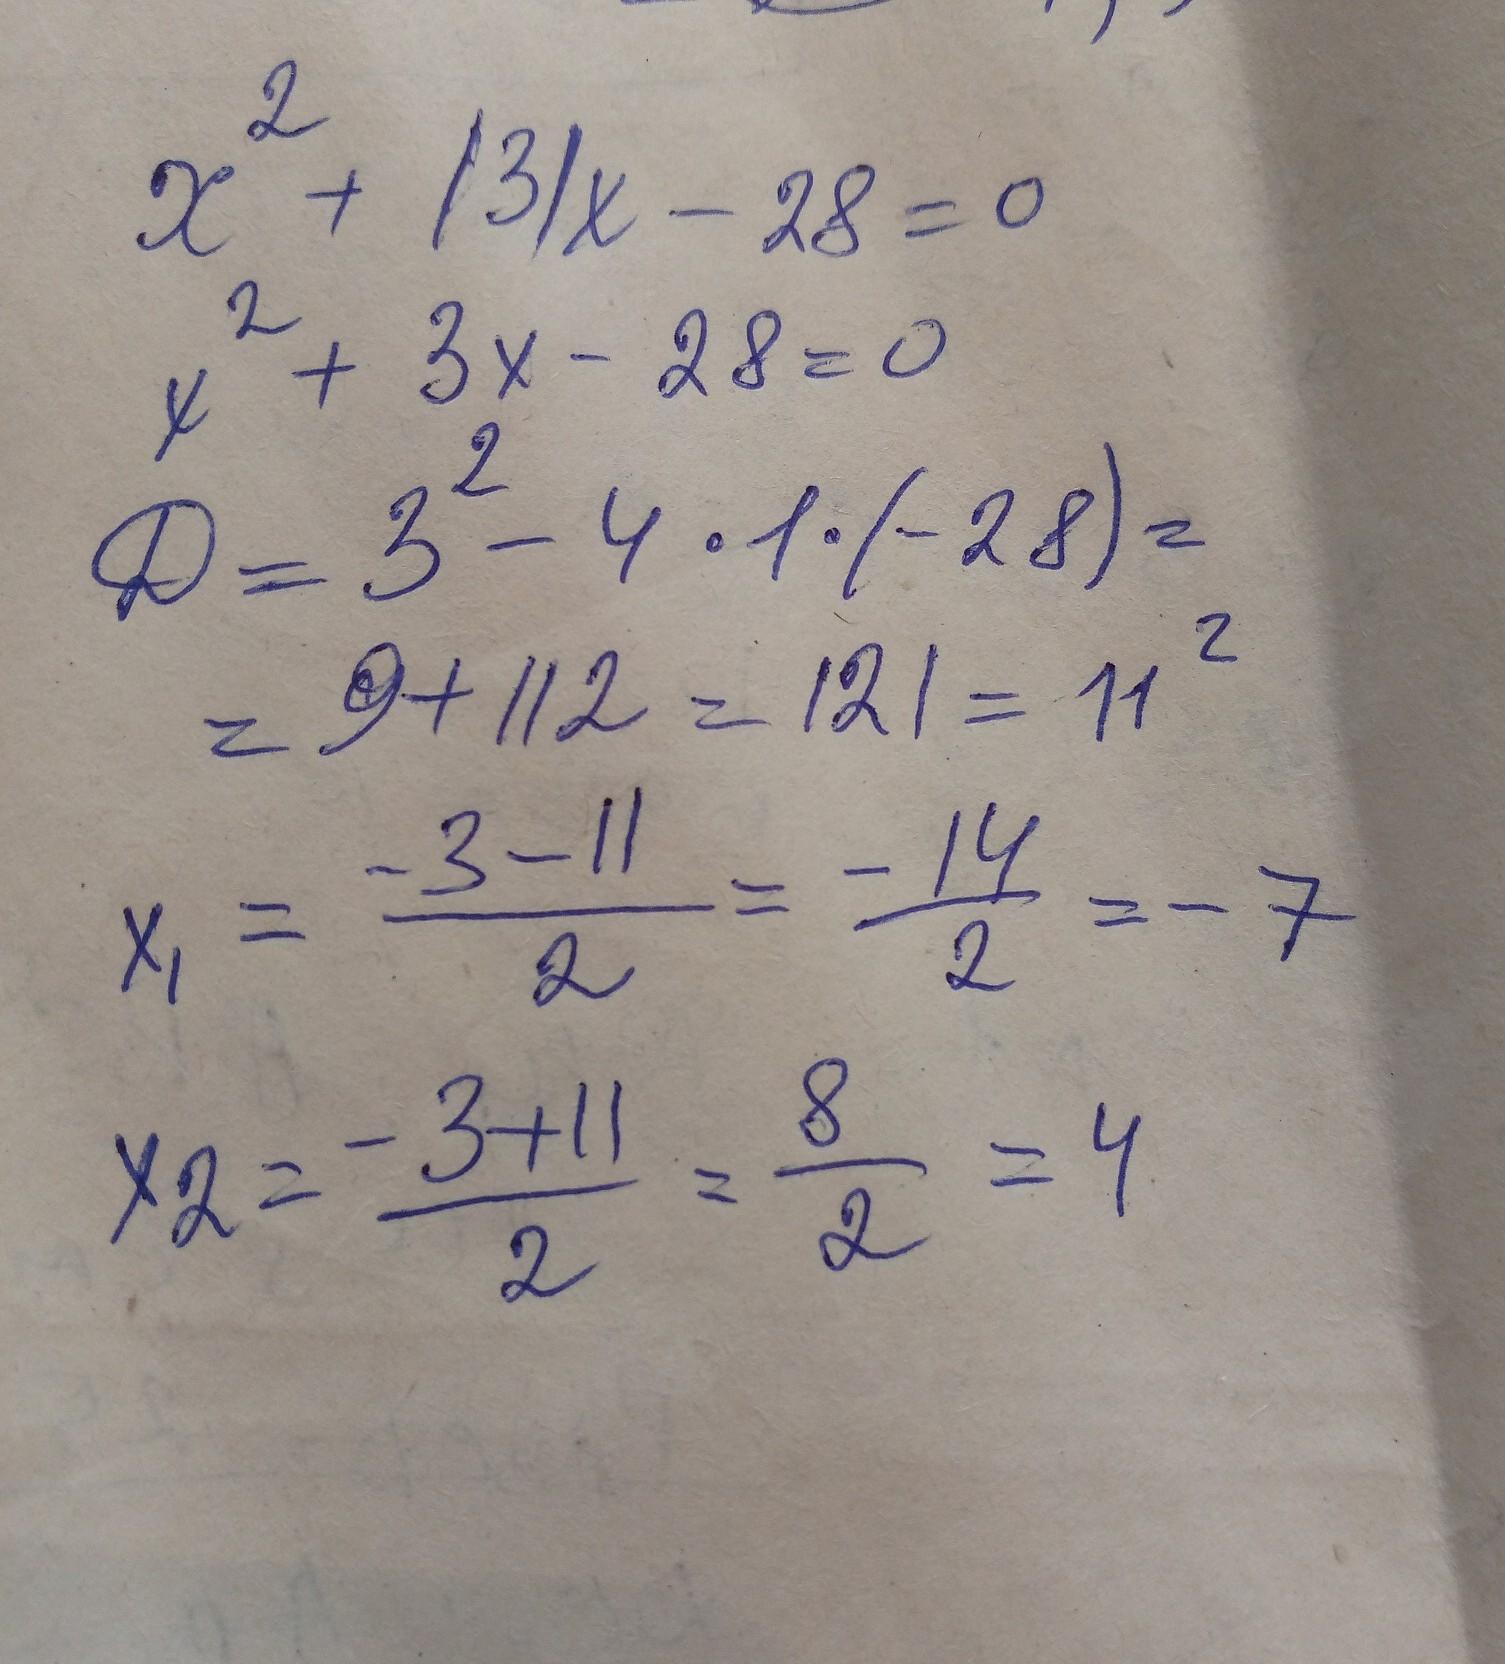 x² + |3|x - 28 = 0
x² + 3x - 28 = 0
D = 3² - 4 · 1 · (-28) =
= 9 + 112 = 121 = 11²
x₁ = (-3 - 11)/2 = -14/2 = -7
x2 = (-3 + 11)/2 = 8/2 = 4